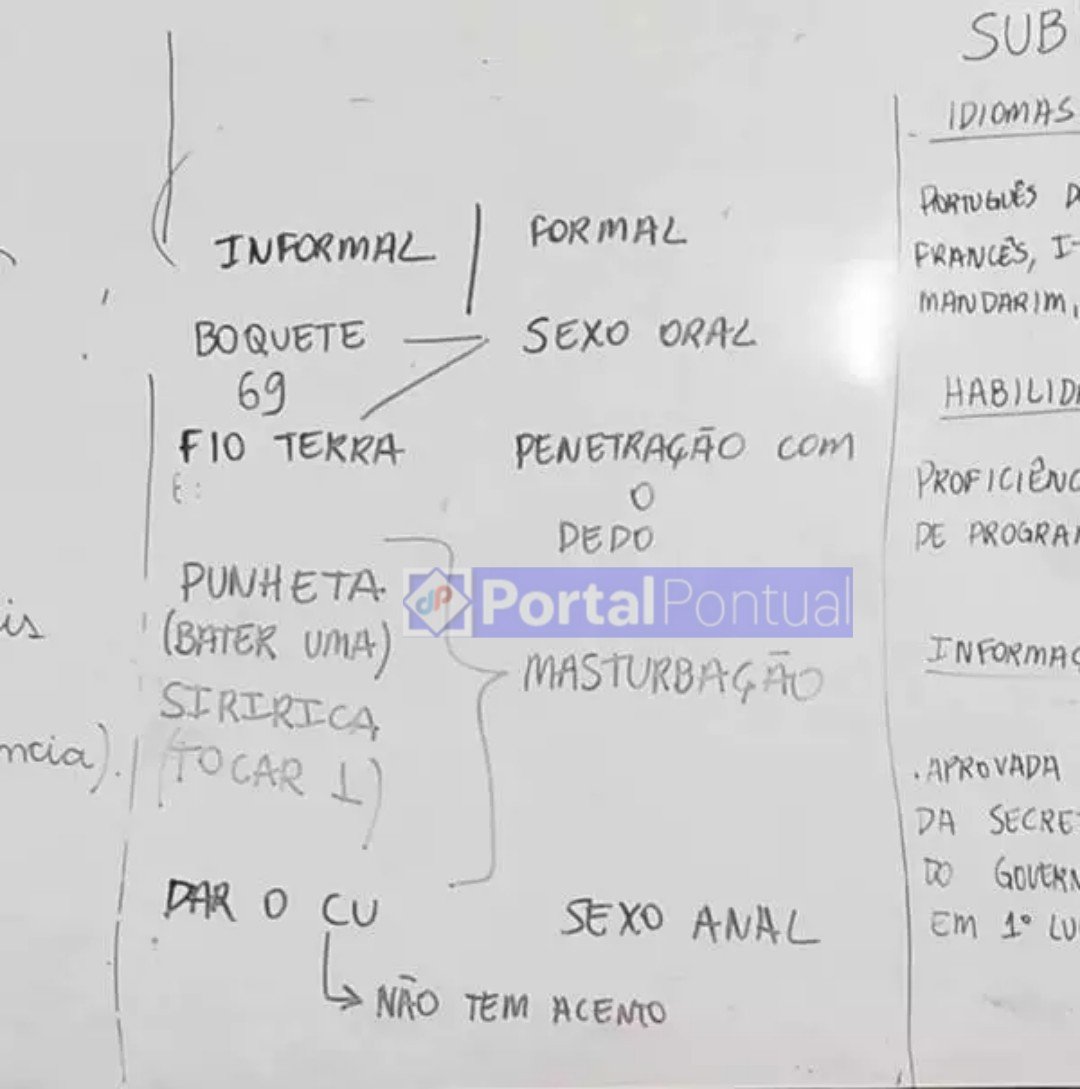 INFORMAL | FORMAL
BOQUETE SEXO ORAL
69
FIO TERRA PENETRAÇÃO COM
E: O
DEDO
PUNHETA
(BATER UMA)
SIRIRICA
(TOCAR 1)
MASTURBAÇÃO
DAR O CU SEXO ANAL
NÃO TEM ACENTO
Portal Pontual
is
ncia).
SUB
IDIOMAS
PORTUGUÊS
FRANCÊS, I
MANDARIM,
HABILIDA
PROFICIÊNC
DE PROGRA
INFORMAÇ
. APROVADA
DA SECRET
DO GOVERN
EM 1º LU